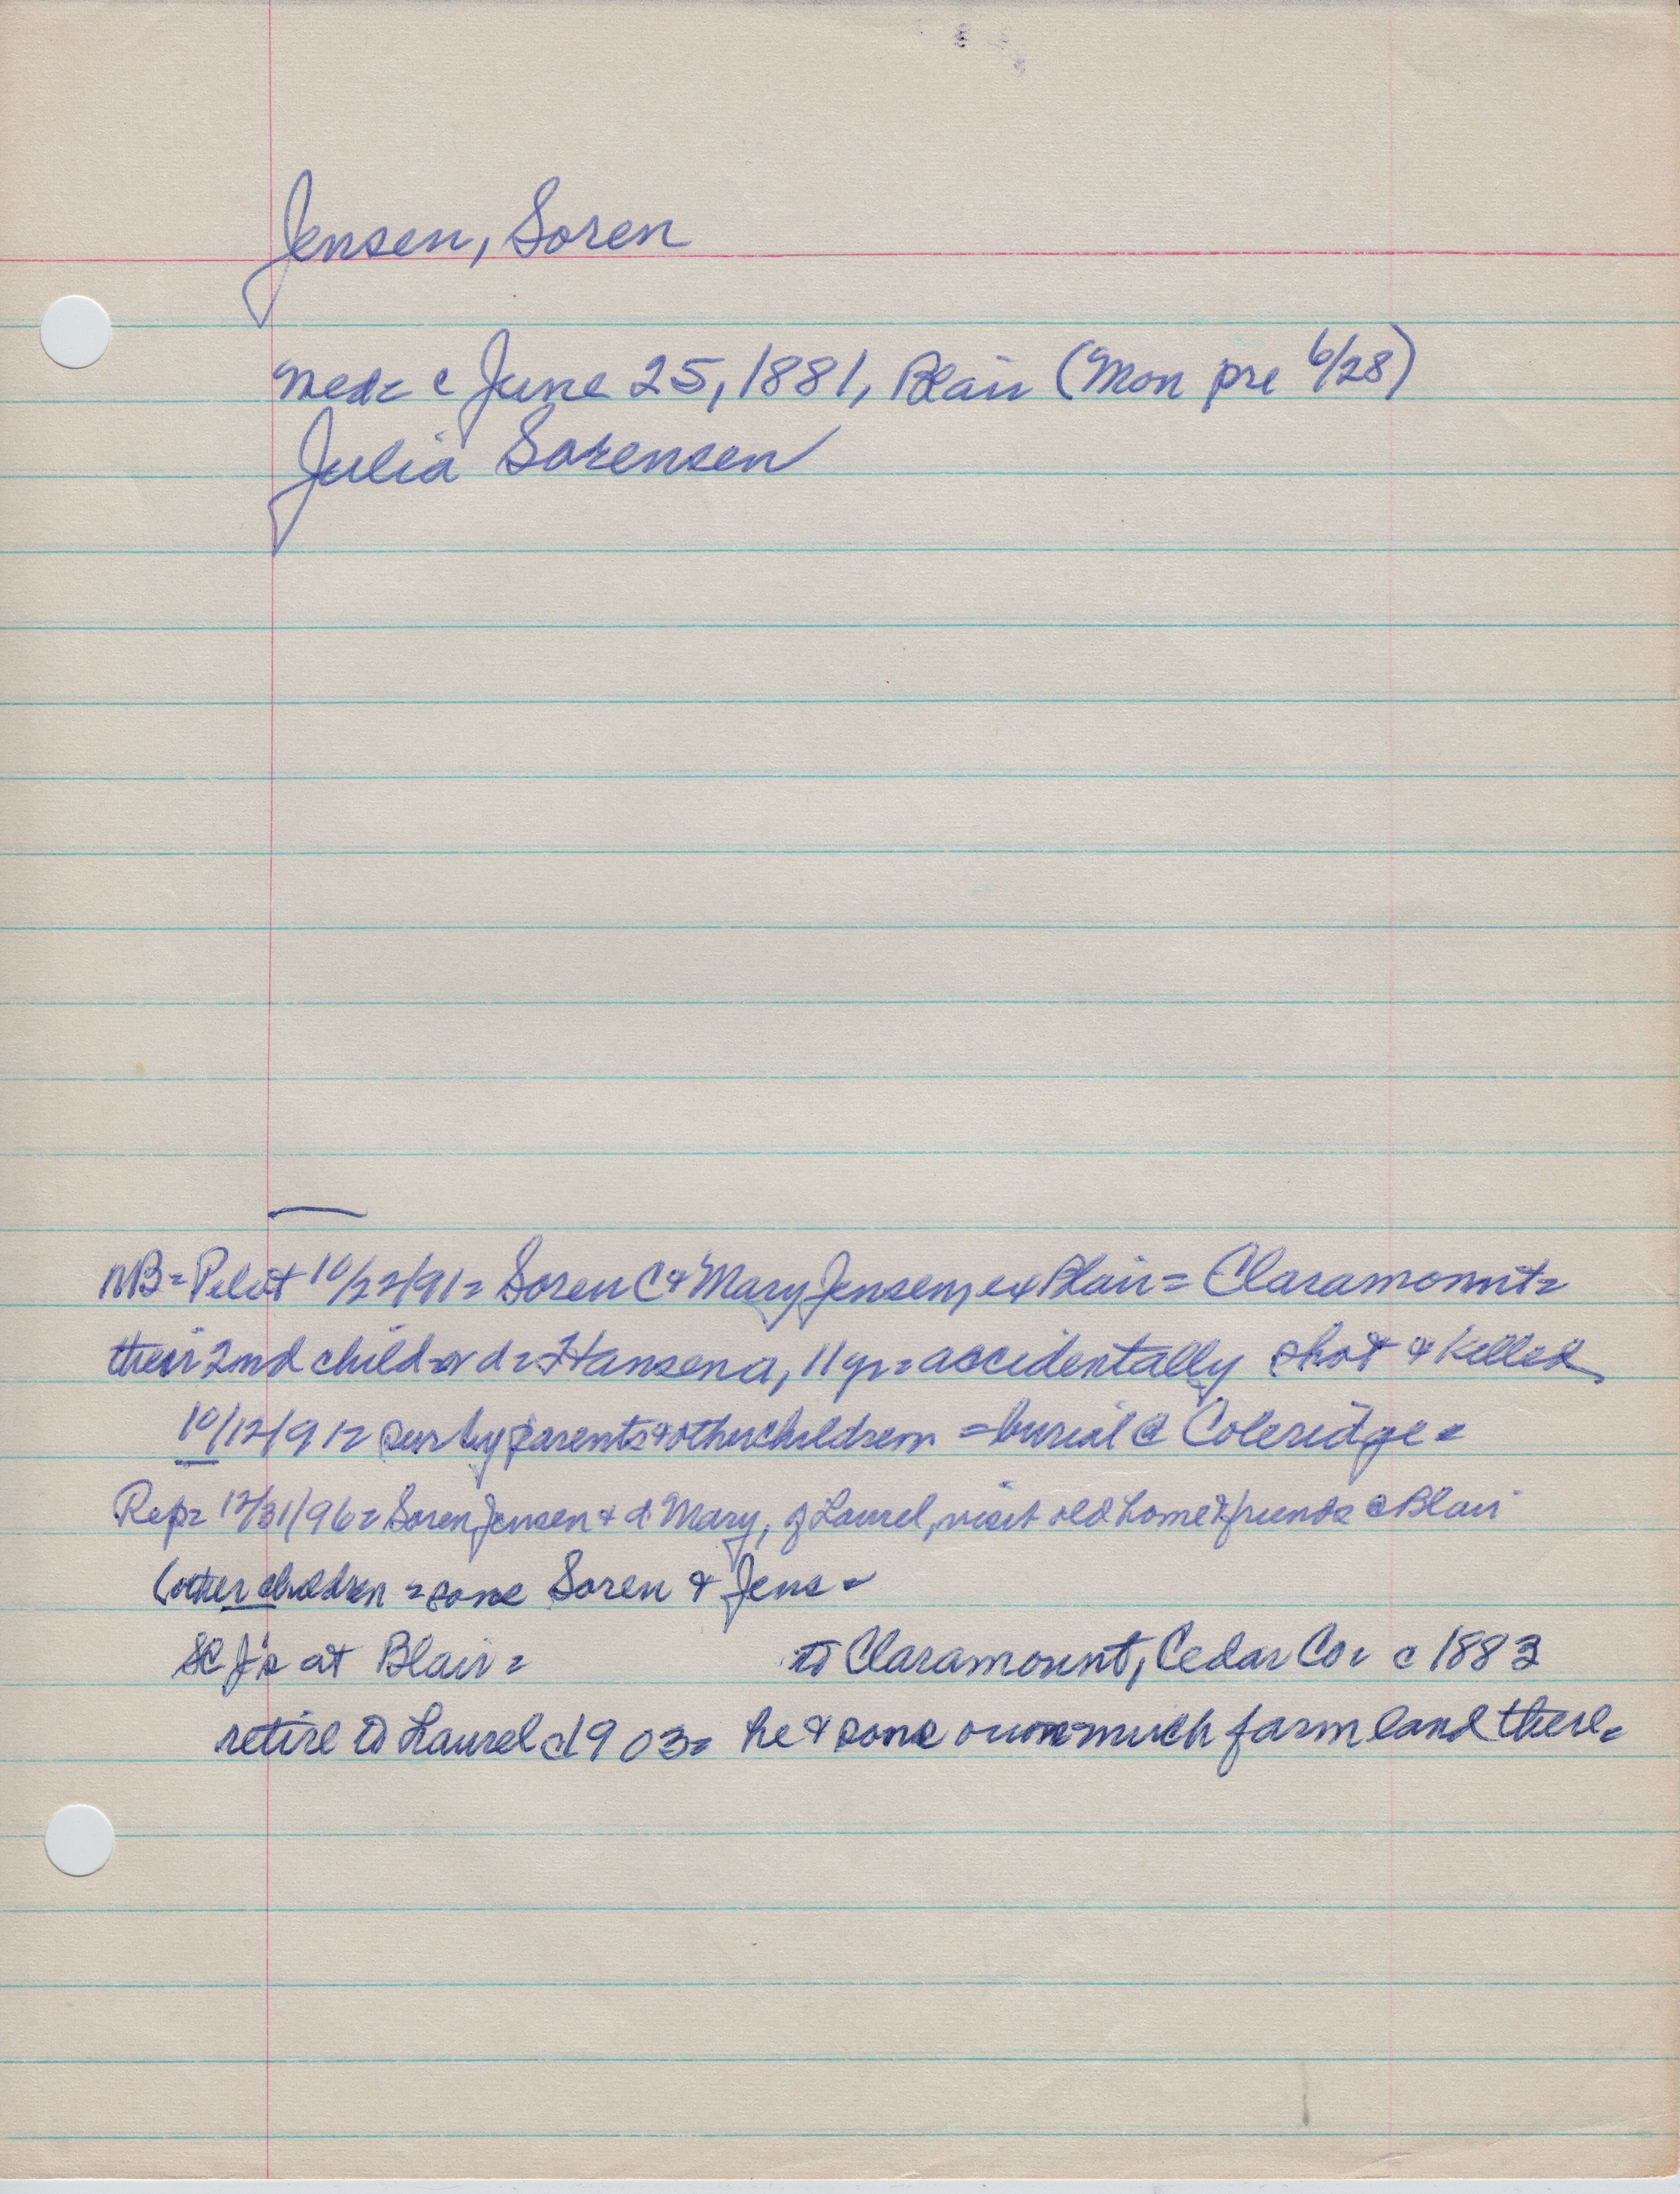 Jensen, Soren
med= c June 25, 1881, Blair (Mon pre 6/28)
Julia Sorensen
NB= Pilot 10/22/91= Soren C & Mary Jensen, ex Blair= Claramount=
their 2nd child d= Hansena, 11 yr= accidentally shot & killed
10/12/91= sur by parents & other children = burial @ Coleridge=
Rep= 12/31/96= Soren Jensen & d Mary, of Laurel, visit old home & friends @ Blair
(other children = sons Soren & Jens=
SC J's at Blair= to Claramount, Cedar Co= c 1883
retire to Laurel c1903= he & sons own much farm land there=